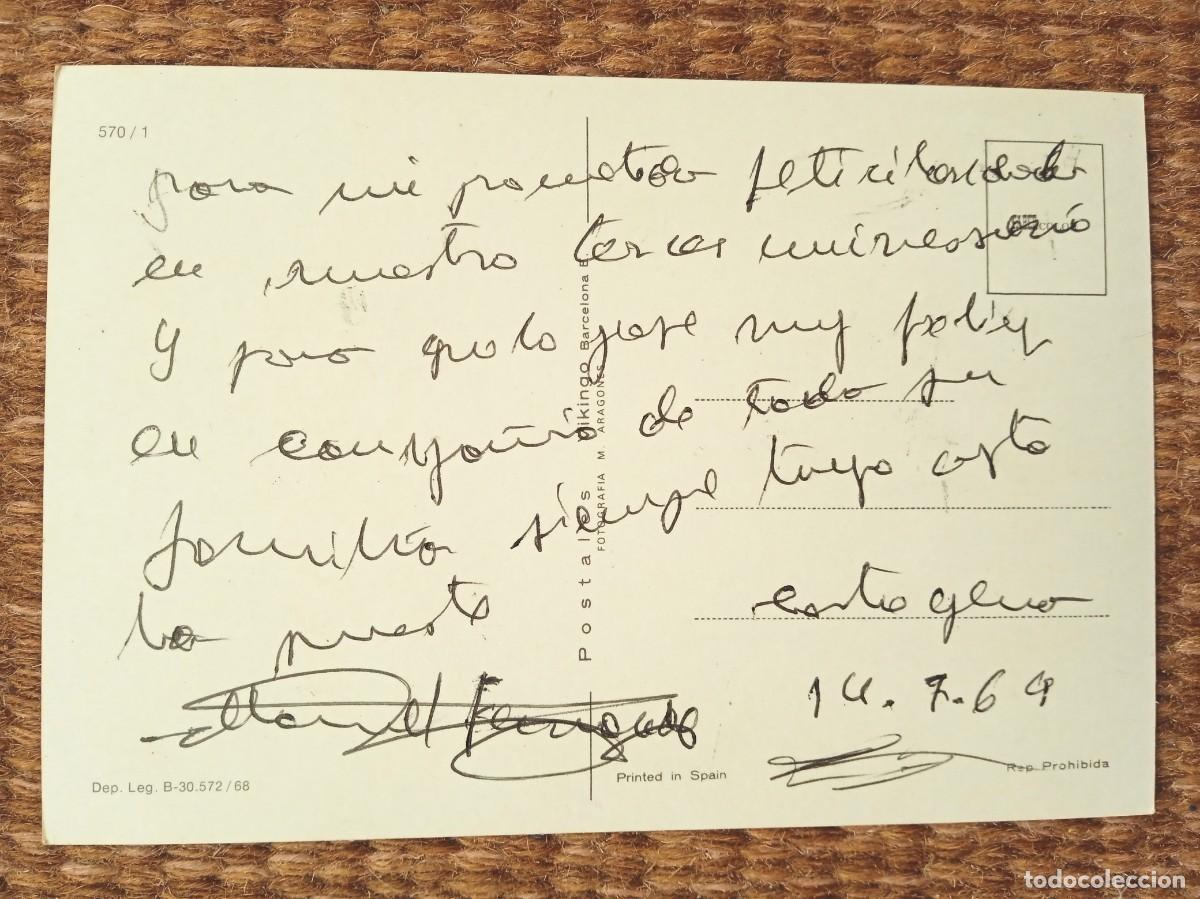 570/1
para mi prometida felicitandola
en nuestro tercer universario
y para que lo pase muy feliz
en compañia de toda su
familia siempre tuyo asta
la muerte
cartagena
Manuel Fernandez
14.7.69
Postales Vikingo Barcelona
FOTOGRAFIA M. ARAGONES
Dep. Leg. B-30.572/68
Printed in Spain
Rep Prohibida
todocoleccion